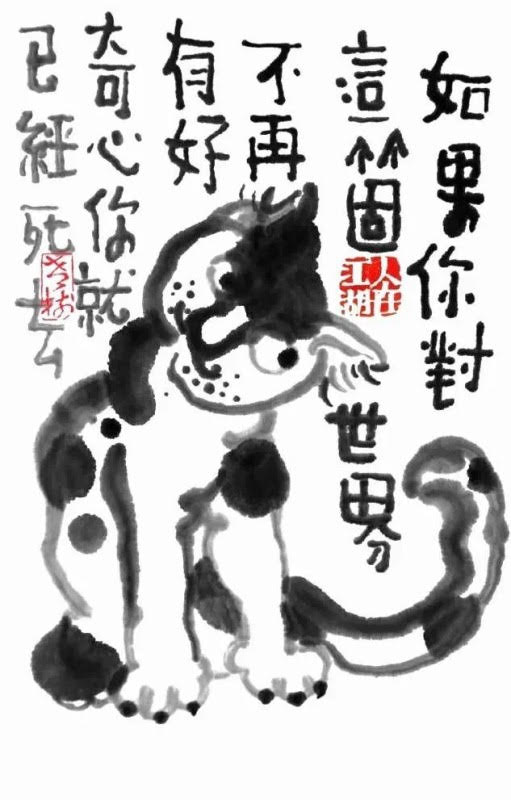 如果你對
這箇世界
不再
有好
奇心你就
已經死去
人在
江湖
老樹